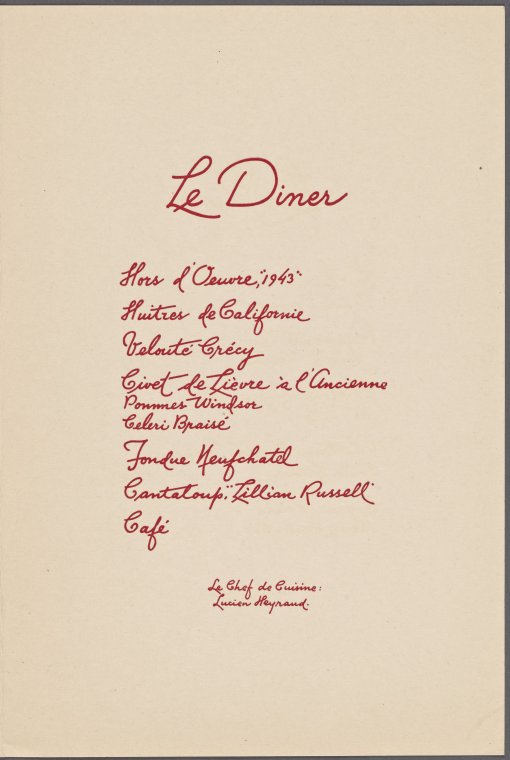 Le Diner
Hors d'Oeuvre, "1943"
Huitres de Californie
Velouté Crécy
Civet de Lièvre à l'Ancienne
Pommes Windsor
Celeri Braisé
Fondue Neufchatel
Cantaloup, "Lillian Russell"
Café
Le Chef de Cuisine:
Lucien Heyraud.